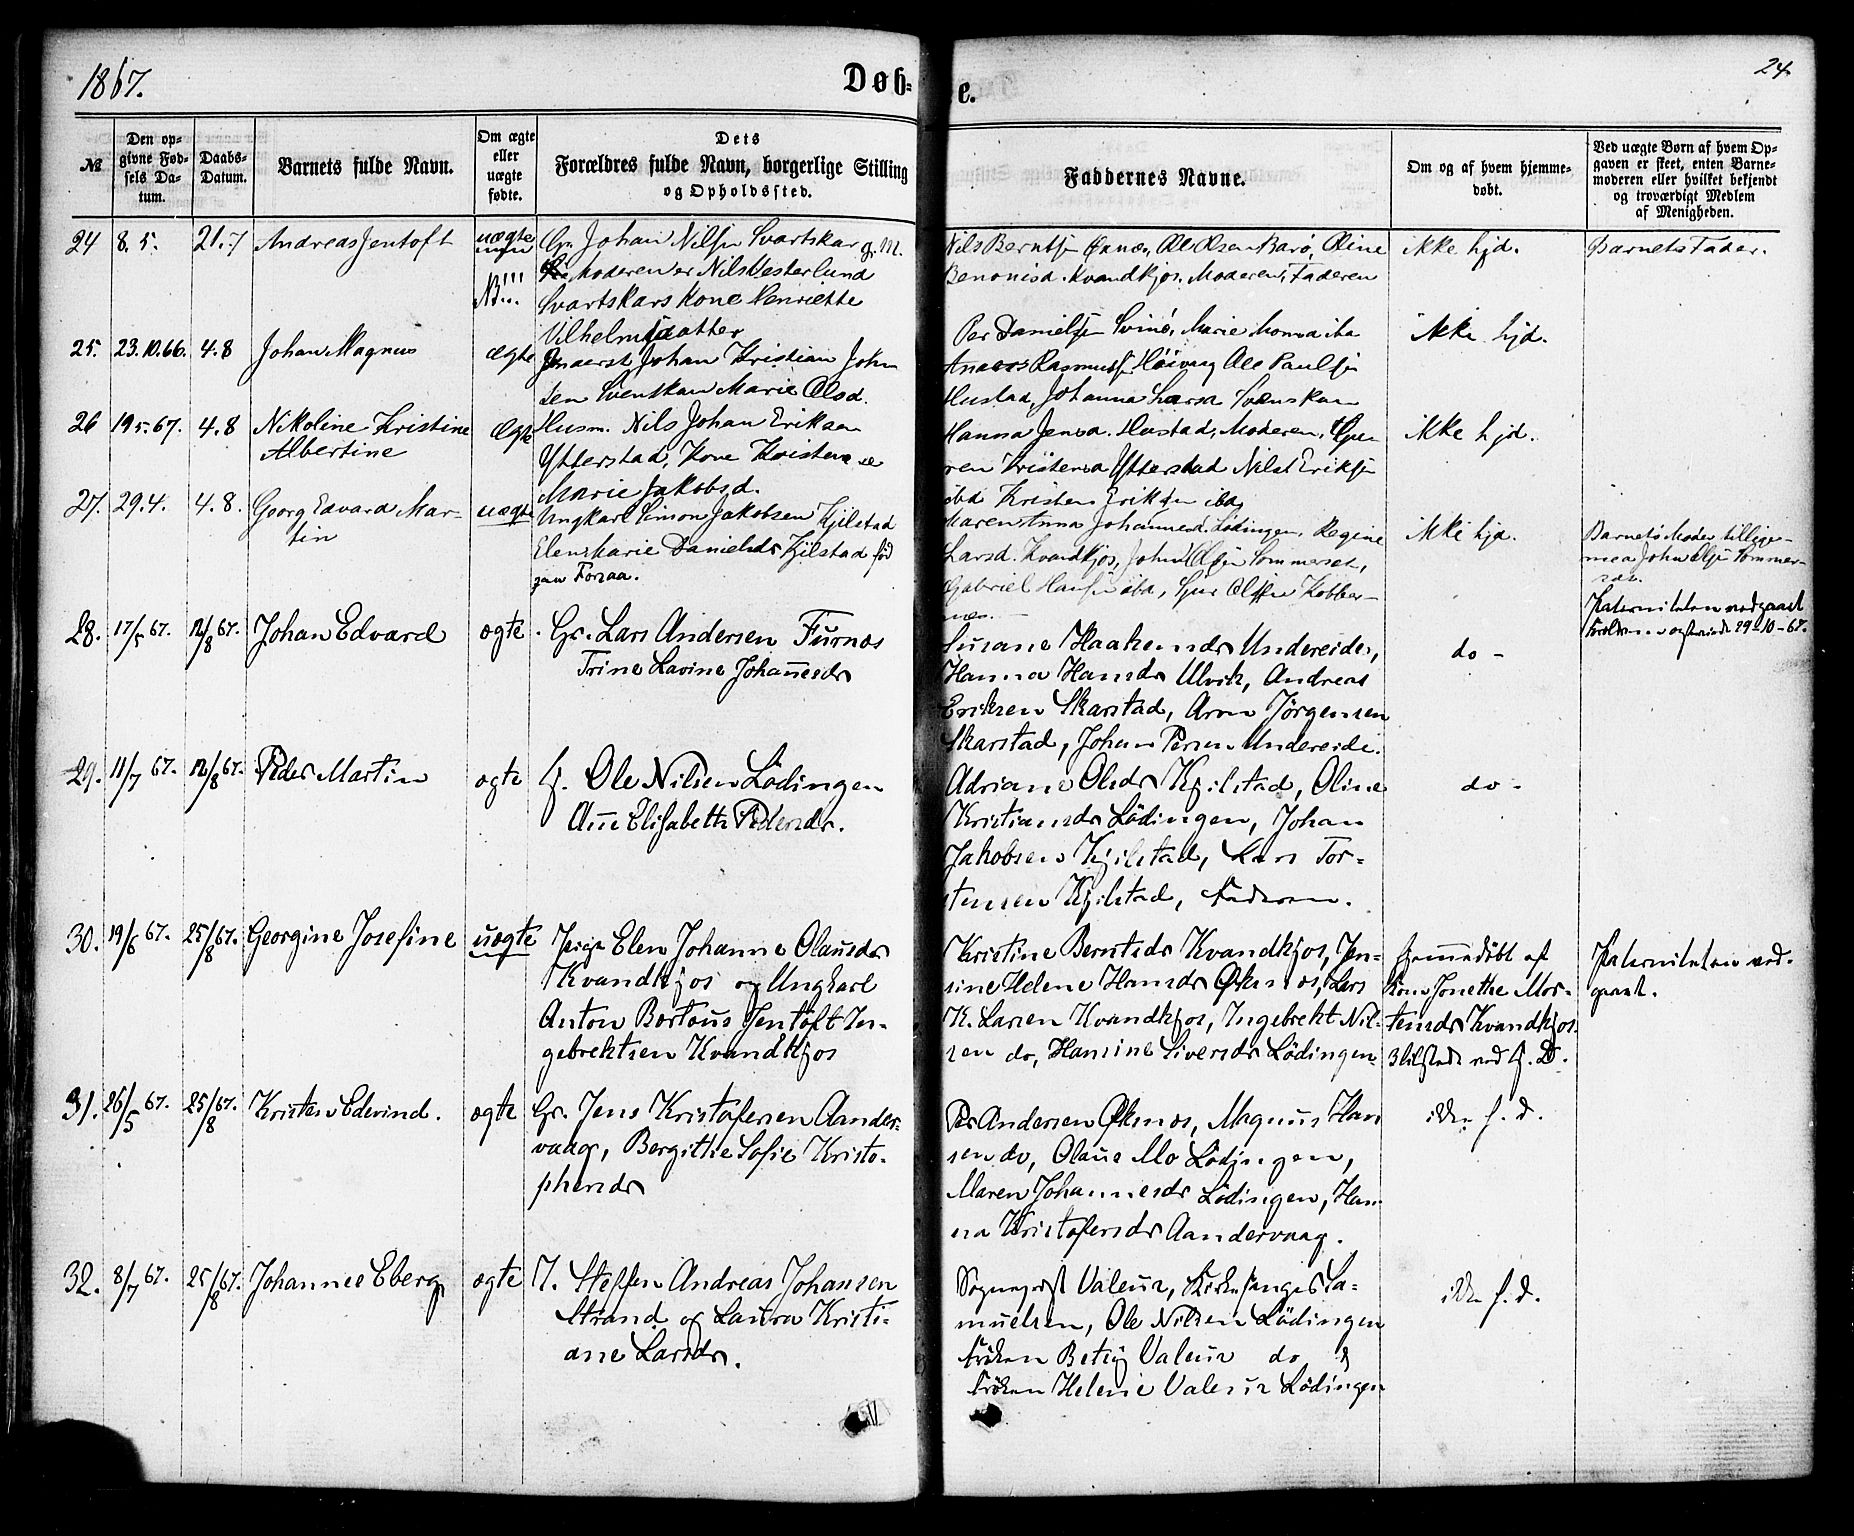 1867.
Døb-
e.
24
№
Den opgivne Fødsels Datum.
Daabs-Datum.
Barnets fulde Navn.
Om ægte eller uægte fødte.
Dets Forældres fulde Navn, borgerlige Stilling og Opholdssted.
Faddernes Navne.
Om og af hvem hjemmedøbt.
Ved uægte Børn af hvem Opgaven er skeet, enten Barnemoderen eller hvilket bekjendt og troværdigt Medlem af Menigheden.
24 8. 5. 21. 7 Andreas Jentoft uægte
NB!!!
Gr. Johan Nilsen Svartskar g. M.
Moderen er Nils Vesterlund
Svartskars Kone Henriette
Vilhelmsdatter
Nils Berntsen Øxnæs, Ole Olsen Barø, Oline
Benonisd. Kvandkjos. Moderen, Faderen
ikke hjd.
Barnets Fader.
25. 23.10.66. 4.8 Johan Magnus ægte
Johan Kristian John
sen Svenskan Marie Olsd.
Per Danielsen Svinø, Marie
Rasmussen Høivaag Ole Paulsen
Hustad, Johanna Larsd Svenskan
ikke hjd.
26 19 5. 67. 4.8 Nikoline Kristine
Albertine
Ægte
Husm. Nils Johan Eriksen
Ytterstad, Kone
Marie Jakobsd.
Hanna Jensd. Hustad, Moderen,
Ytterstad Nils Eriksen
ibd Kristen Eriksen ibd
ikke hjd.
27. 29.4. 4.8. Georg Edvard Mar-
tin
uægte
Ungkarl Simon Jakobsen Kjilstad
Elen Marie Danielsd. Kjilstad født
paa Foraa.
Maren Anna Johannesd. Lødingen, Regine
Larsd. Kvandkjos, John Olsen Sommerset,
Gabriel Hansen ibd, Olsen Kobber-
næs.
ikke hjd.
Barnets Moder tillige-
med John Olsen Sommer-
set.
Paterniteten vedgaaet
29-10-67.
28. 17/5 67. 12/8 67. Johan Edvard ægte
Gr. Lars Andersen Furnes
Trine Lavine Johannesdr
Susane Haakonsdr Undereidet,
Hanna Hansdr Ulvik, Andreas
Eriksen Skarstad, Aron Jørgensen
Skarstad, Johan Persen Undereide.
do -
29. 11/7 67. 12/8 67. Peder Martin ægte
Ole Nilsen Lødingen
Ane Elisabeth Pedersdr.
Adriane Olsdr Kjilstad, Oline
Kristiansdr Lødingen, Johan
Jakobsen Kjilstad, Lars Tor-
stensen Kjilstad, Faderen.
do -
30. 19/6 67. 25/8 67. Georgine Josefine uægte
Pige Elen Johanne Olausdr
Kvandkjos og Ungkarl
Anton Bertøus Jentoft In-
gebrektsen Kvandkjos
Kristine Berntsdr Kvandkjos, Jen-
sine Helene Hansdr Øksnes, Lars
K. Larsen Kvandkjos, Ingebrekt Nil-
sen do, Hansine Siversdr Lødingen
hjemmedøbt af
Kone Jonethe Mor-
tensdr Kvandkjos.
3 tilstede ved H. D.
Paterniteten ved-
gaaet.
31. 26/5 67. 25/8 67. Kristen Edevind. ægte
Gr. Jens Kristofersen Aander-
vaag, Bergithe Sofie Kristo-
phersdr
Per Andersen Øksnes, Magnus Han
sen do, Olaus Mo Lødingen,
Maren Johannesdr Lødingen, Han
na Kristofersdr Aandervaag.
ikke h. d.
32. 8/7 67. 25/8 67. Johannes Eberg ægte
I. Steffen Andreas Johansen
Strand og Laura Kristi-
ane Larsdr.
Sogneprest Valeur, Kirkesanger Sa-
muelsen, Ole Nilsen Lødingen
Frøken Betsy Valeur do &
Frøken Helene Valeur Lødingen
ikke h. d.